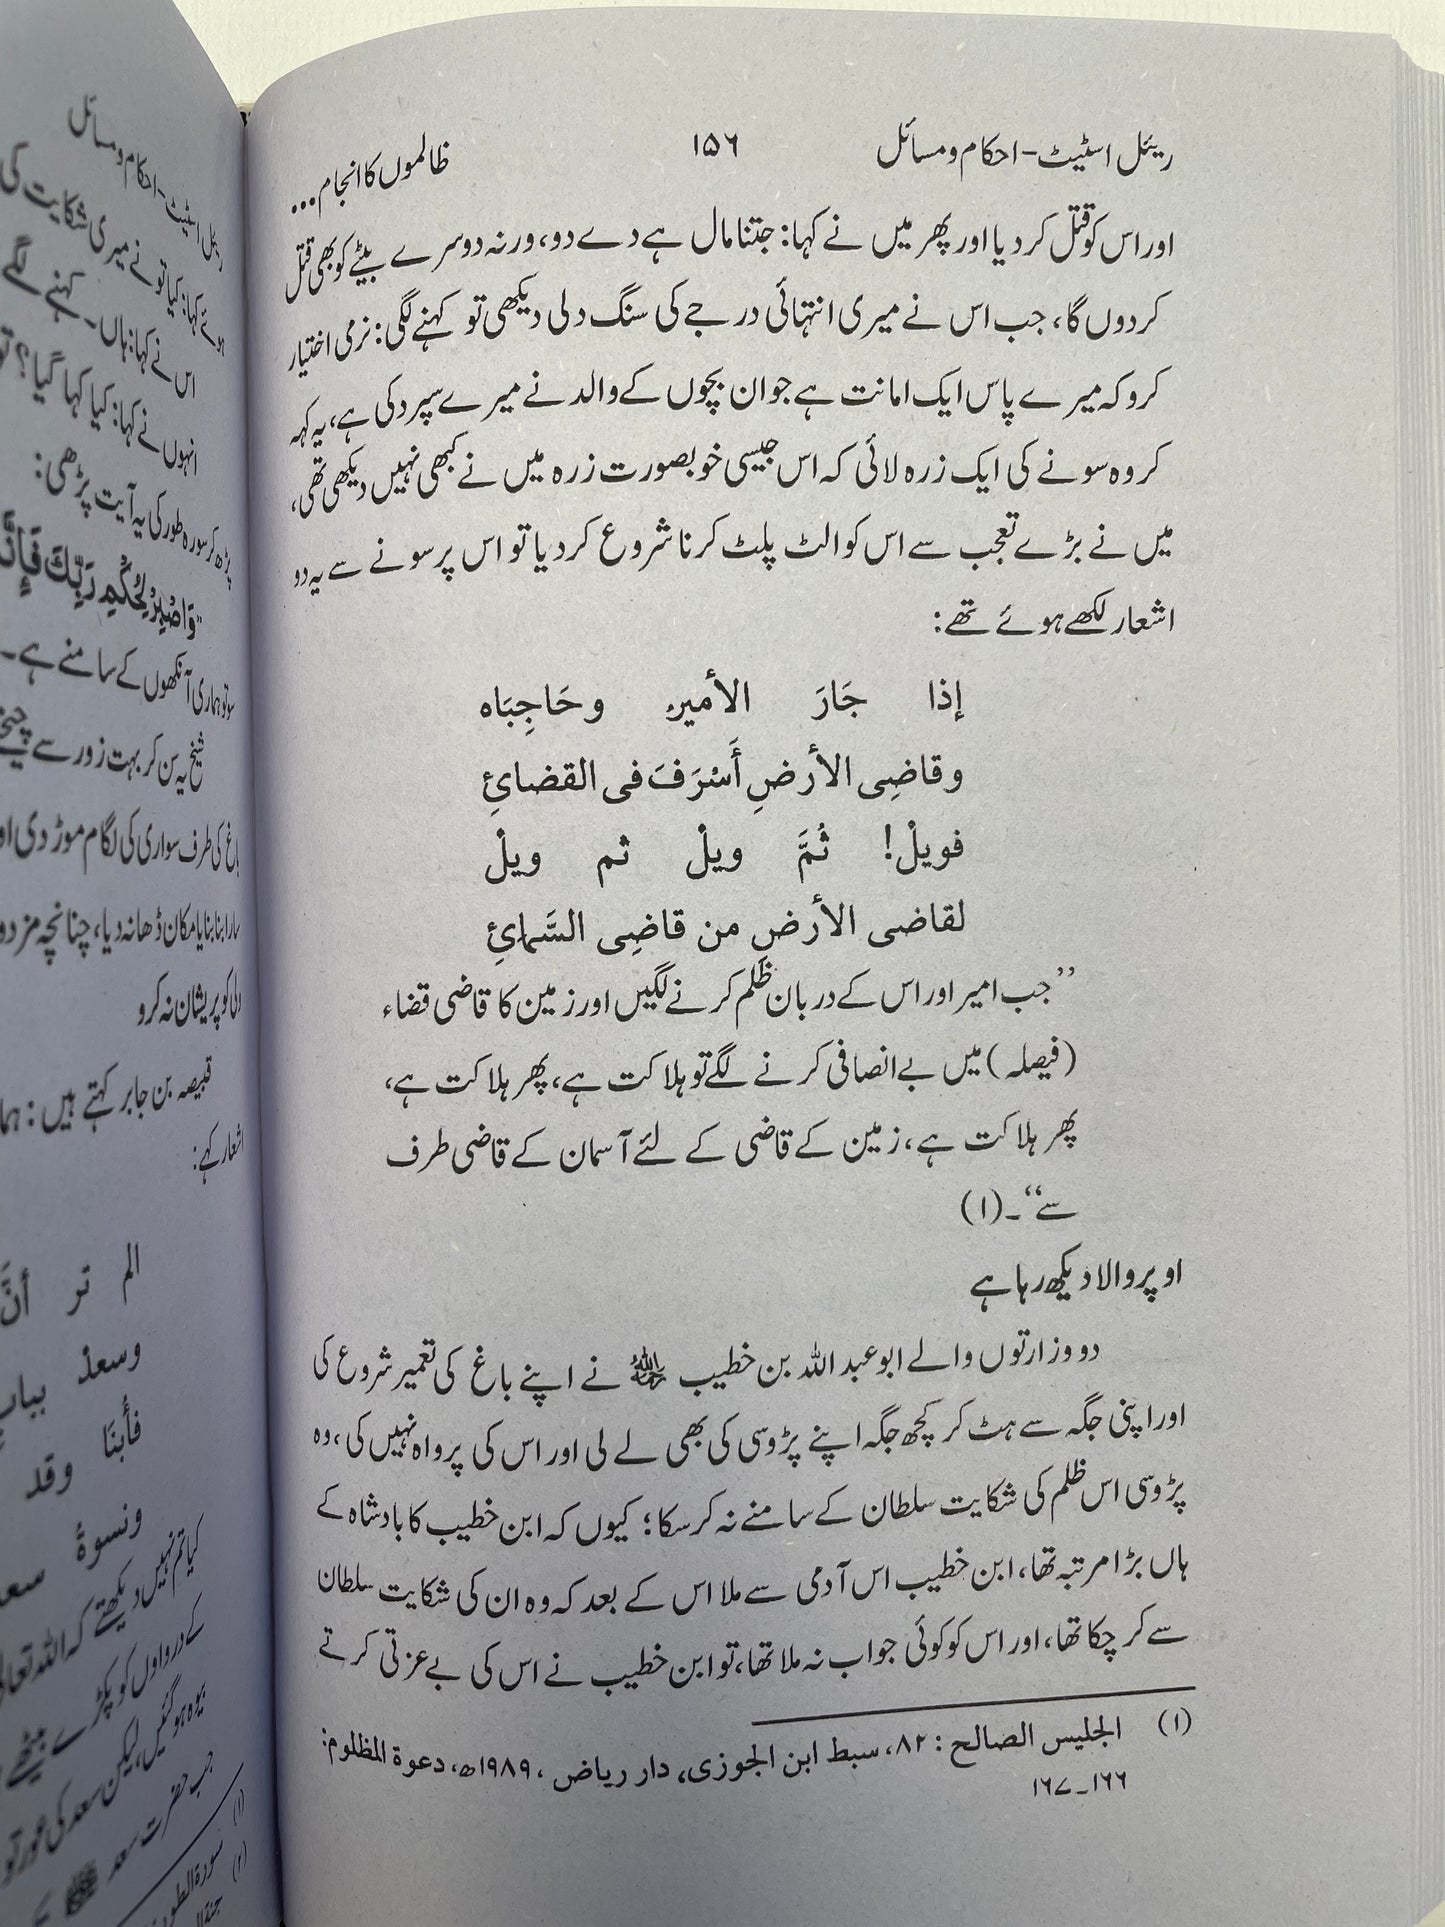 ریئل اسٹیٹ-احکام و مسائل ۱۵۶ ظالموں کا انجام...
اور اس کو قتل کر دیا اور پھر میں نے کہا: جتنا مال ہے دے دو، ورنہ دوسرے بیٹے کو بھی قتل
کر دوں گا، جب اس نے میری انتہائی درجے کی سنگ دلی دیکھی تو کہنے لگی: نرمی اختیار
کرو کہ میرے پاس ایک امانت ہے جو ان بچوں کے والد نے میرے سپرد کی ہے، یہ کہہ
کر وہ سونے کی ایک زرہ لائی کہ اس جیسی خوبصورت زرہ میں نے کبھی نہیں دیکھی تھی،
میں نے بڑے تعجب سے اس کو الٹ پلٹ کرنا شروع کر دیا تو اس پر سونے سے یہ دو
اشعار لکھے ہوئے تھے:
إذا جَارَ الأمیرُ وحَاجِبَاه
وقاضِی الأرضِ أَسْرَفَ فی القضائِ
فویلٌ! ثُمَّ ویلٌ ثم ویلٌ
لقاضی الأرضِ من قاضِی السَّمائِ
’’جب امیر اور اس کے دربان ظلم کرنے لگیں اور زمین کا قاضی قضاء
(فیصلہ) میں بے انصافی کرنے لگے تو ہلاکت ہے، پھر ہلاکت ہے،
پھر ہلاکت ہے، زمین کے قاضی کے لئے آسمان کے قاضی طرف
سے‘‘۔(۱)
اوپر والا دیکھ رہا ہے
دو وزارتوں والے ابو عبد اللہ بن خطیب رحمہ اللہ نے اپنے باغ کی تعمیر شروع کی
اور اپنی جگہ سے ہٹ کر کچھ جگہ اپنے پڑوسی کی بھی لے لی اور اس کی پرواہ نہیں کی، وہ
پڑوسی اس ظلم کی شکایت سلطان کے سامنے نہ کر سکا؛ کیوں کہ ابن خطیب کا بادشاہ کے
ہاں بڑا مرتبہ تھا، ابن خطیب اس آدمی سے ملا اس کے بعد کہ وہ ان کی شکایت سلطان
سے کر چکا تھا، اور اس کو کوئی جواب نہ ملا تھا، تو ابن خطیب نے اس کی بے عزتی کرتے
(۱) الجلیس الصالح: ۸۲، سبط ابن الجوزی، دار ریاض، ۱۹۸۹ھ، دعوۃ المظلوم:
۱۶۶۔۱۶۷
ریئل اسٹیٹ-احکام و مسائل
ہوئے کہا: کیا تو نے میری شکایت کی
اس نے کہا: ہاں۔ کہنے لگے
انہوں نے کہا: کیا کہا گیا؟
پڑھ کر سورہ طور کی یہ آیت پڑھی:
”وَاصْبِرْ لِحُكْمِ رَبِّكَ فَإِنَّ
سو تو ہماری آنکھوں کے سامنے ہے۔
شیخ یہ سن کر بہت زور سے
باغ کی طرف سواری کی لگام موڑ دی
سارا بنا بنایا مکان ڈھا نہ دیا، چنانچہ
کو پریشان نہ کرو
قبیصہ بن جابر کہتے ہیں:
اشعار کہے:
الم تر أنَّ
وسعدٌ بباب
فأبنَا وقد
ونسوةُ
کیا تم نہیں دیکھتے کہ اللہ
کے دروازوں کو پکڑے بیٹھے
بیوہ ہو گئیں، لیکن سعد کی
جب حضرت سعد
(۱) سورۃ الطور
(۲)